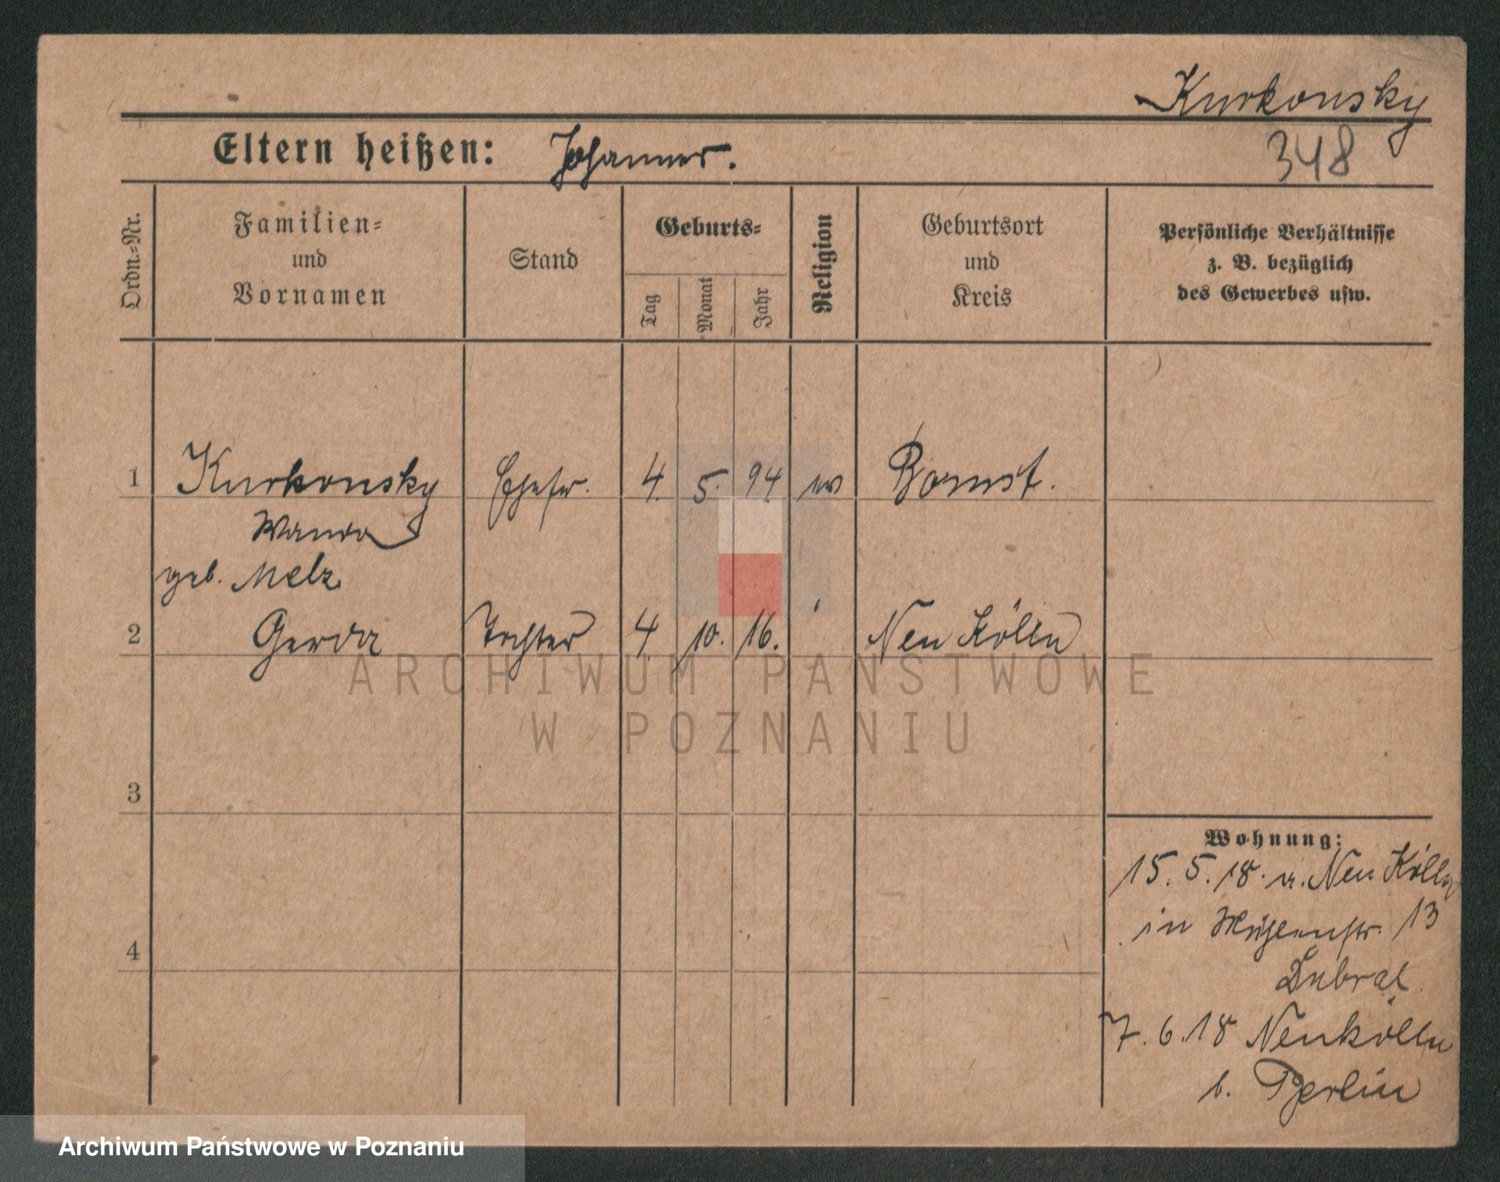 Kurkonsky
348
Eltern heißen: Johanner.
Ordn.-Nr.
Familien- und Vornamen
Stand
Geburts-
Tag
Monat
Jahr
Religion
Geburtsort und Kreis
Persönliche Verhältnisse
z. B. bezüglich
des Gewerbes usw.
1 Kurkonsky Ehefr. 4. 5. 94 ev Bomst.
Wanda
geb. Melz
2 Gerda Tochter 4 10. 16. Neu Kölln
3
4
Wohnung:
15. 5. 18. v. Neu Kölln
in 13
7. 6. 18 Neukölln
b. Berlin
ARCHIWUM PAŃSTWOWE
W POZNANIU
Archiwum Państwowe w Poznaniu